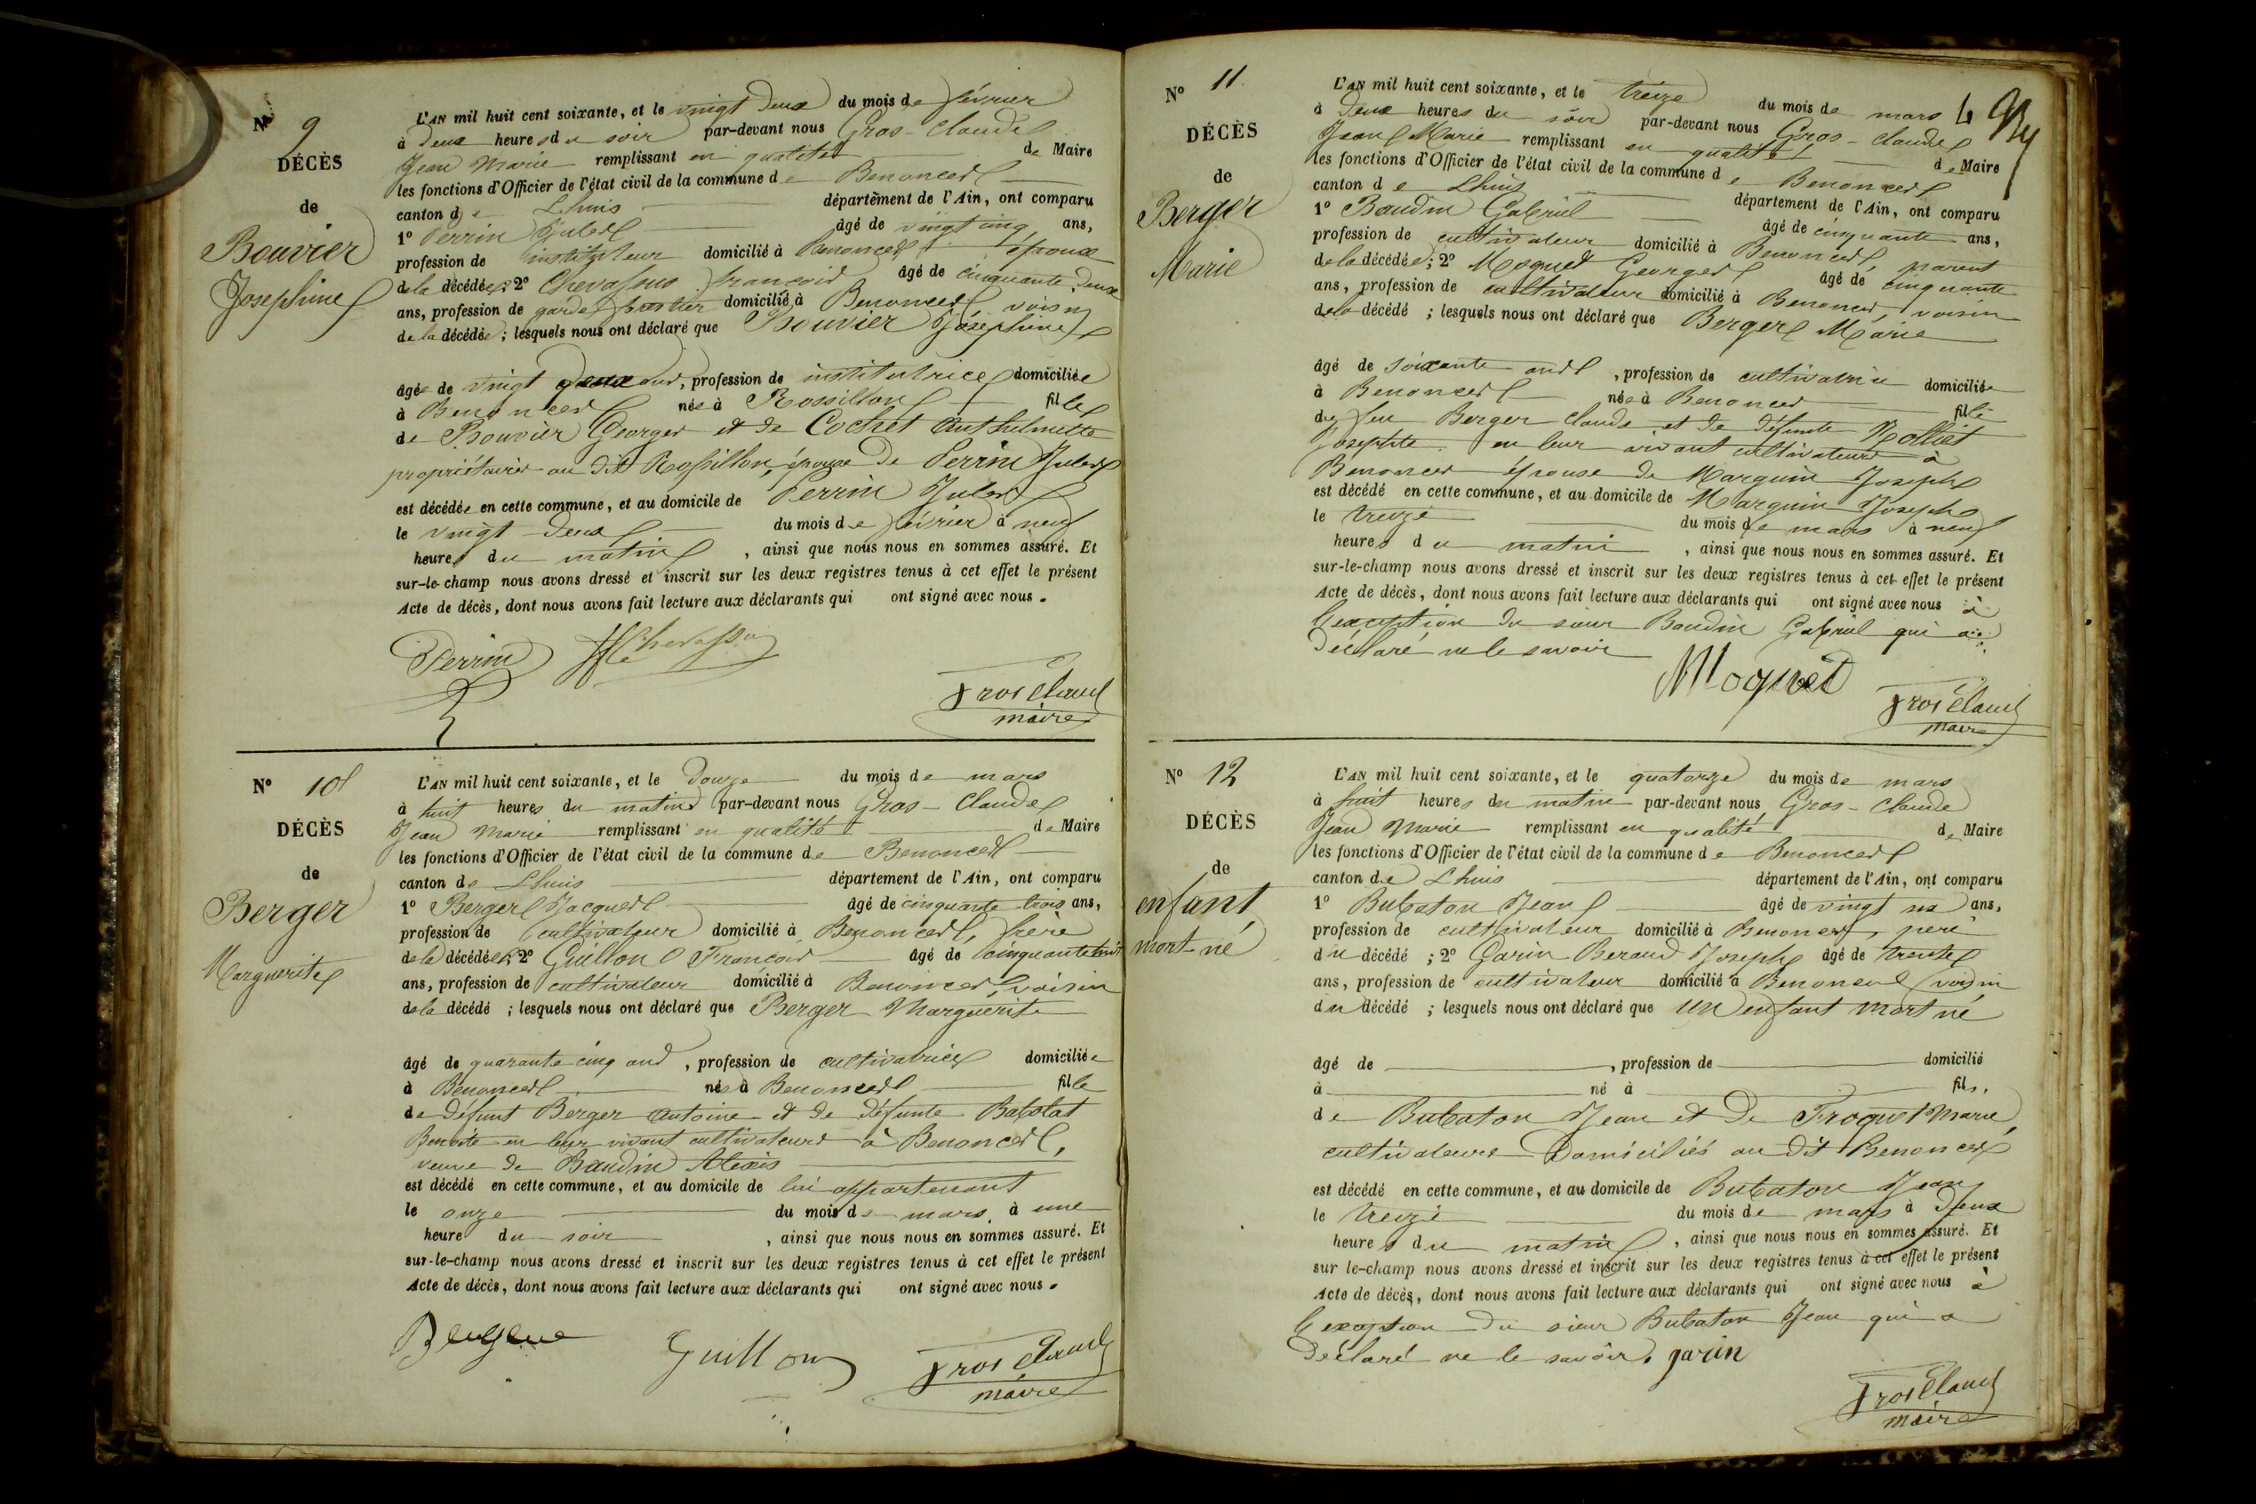 N° 9
DÉCÈS
de
Bouvier
Josephine
L'AN mil huit cent soixante, et le vingt deux du mois de février
à deux heures du soir par-devant nous Gros-Claude
Jean Marie remplissant en qualité de Maire
les fonctions d'Officier de l'état civil de la commune de Benonces
canton de Lhuis département de l'Ain, ont comparu
1° Perrin Jules âgé de vingt cinq ans,
profession de instituteur domicilié à Benonces époux
de la décédée; 2° Chevassus françois âgé de cinquante deux
ans, profession de garde forestier domicilié à Benonces voisin
de la décédée; lesquels nous ont déclaré que Bouvier Joséphine
âgée de vingt deux ans, profession de institutrice domiciliée
à Benonces née à Rossillon fille
de Bouvier Georges et de Cochet Anthelmette
propriétaires au dit Rossillon, épouse de Perrin Jules
est décédée en cette commune, et au domicile de Perrin Jules
le vingt deux du mois de février à neuf
heures du matin, ainsi que nous nous en sommes assuré. Et
sur-le-champ nous avons dressé et inscrit sur les deux registres tenus à cet effet le présent
Acte de décès, dont nous avons fait lecture aux déclarants qui ont signé avec nous.
Perrin Chevassus
Gros Claude
maire
N° 10
DÉCÈS
de
Berger
Marguerite
L'AN mil huit cent soixante, et le douze du mois de mars
à huit heures du matin par-devant nous Gros-Claude
Jean Marie remplissant en qualité de Maire
les fonctions d'Officier de l'état civil de la commune de Benonces
canton de Lhuis département de l'Ain, ont comparu
1° Berger Jacques âgé de cinquante trois ans,
profession de cultivateur domicilié à Benonces, frère
de la décédée; 2° Guillon François âgé de cinquante huit
ans, profession de cultivateur domicilié à Benonces, voisin
de la décédé; lesquels nous ont déclaré que Berger Marguerite
âgé de quarante cinq ans, profession de cultivatrice domiciliée
à Benonces née à Benonces fille
de défunt Berger Antoine et de défunte Babolat
Benoite en leur vivant cultivateurs à Benonces,
veuve de Baudin Alexis
est décédé en cette commune, et au domicile de lui appartenant
le onze du mois de mars à une
heure du soir, ainsi que nous nous en sommes assuré. Et
sur-le-champ nous avons dressé et inscrit sur les deux registres tenus à cet effet le présent
Acte de décès, dont nous avons fait lecture aux déclarants qui ont signé avec nous.
Guillon Gros Claude
maire
N° 11
DÉCÈS
de
Berger
Marie
L'AN mil huit cent soixante, et le treize du mois de mars
à deux heures du soir par-devant nous Gros-Claude
Jean Marie remplissant en qualité de Maire
les fonctions d'Officier de l'état civil de la commune de Benonces
canton de Lhuis département de l'Ain, ont comparu
1° Baudin Gabriel âgé de cinquante ans,
profession de cultivateur domicilié à Benonces, parent
de la décédée; 2° Moquet Georges âgé de cinquante
ans, profession de cultivateur domicilié à Benonces, voisin
de la décédé; lesquels nous ont déclaré que Berger Marie
âgé de soixante ans, profession de cultivatrice domiciliée
à Benonces née à Benonces fille
de feu Berger Claude et de défunte Molliet
Josephte en leur vivant cultivateurs à
Benonces épouse de Marquin Joseph
est décédé en cette commune, et au domicile de Marquin Joseph
le treize du mois de mars à neuf
heures du matin, ainsi que nous nous en sommes assuré. Et
sur-le-champ nous avons dressé et inscrit sur les deux registres tenus à cet effet le présent
Acte de décès, dont nous avons fait lecture aux déclarants qui ont signé avec nous à
l'exception du sieur Baudin Gabriel qui a
déclaré ne le savoir
Moquet Gros Claude
maire
N° 12
DÉCÈS
de
enfant
mort-né
L'AN mil huit cent soixante, et le quatorze du mois de mars
à huit heures du matin par-devant nous Gros-Claude
Jean Marie remplissant en qualité de Maire
les fonctions d'Officier de l'état civil de la commune de Benonces
canton de Lhuis département de l'Ain, ont comparu
1° Bubaton Jean âgé de vingt ans,
profession de cultivateur domicilié à Benonces, père
du décédé; 2° Garin Beraud Joseph âgé de trente
ans, profession de cultivateur domicilié à Benonces voisin
du décédé; lesquels nous ont déclaré que un enfant mort né
âgé de, profession de domicilié
à né à fils.
de Bubaton Jean et de Troquet Marie,
cultivateurs domiciliés au dit Benonces
est décédé en cette commune, et au domicile de Bubaton Jean
le treize du mois de mars à deux
heures du matin, ainsi que nous nous en sommes assuré. Et
sur le-champ nous avons dressé et inscrit sur les deux registres tenus à cet effet le présent
Acte de décès, dont nous avons fait lecture aux déclarants qui ont signé avec nous à
l'exception du sieur Bubaton Jean qui a
déclaré ne le savoir. garin
Gros Claude
maire